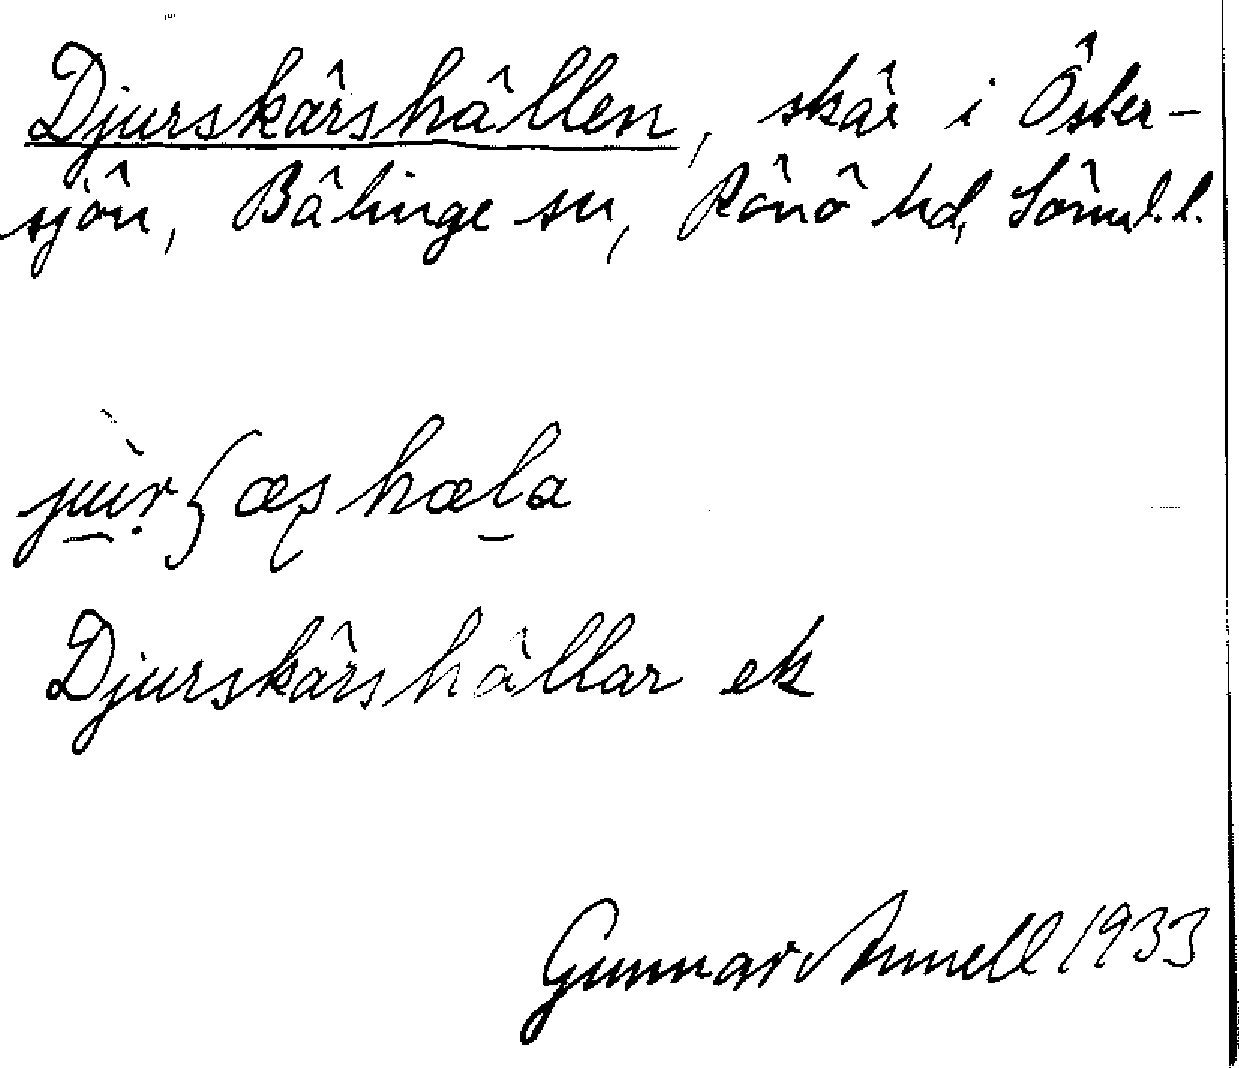 Djurskärshällen, skär i Öster-
sjön, Bälinge sn, Rönö hd, Söderm. l.
Djurskärshällar ek
Gunnar Annell 1933